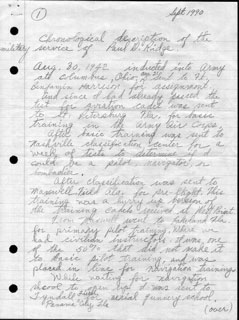 Sept 1990
1
Chronological description of the
military service of Paul D.
Aug. 20, 1942 inducted into Army
at Columbus, Ohio, sent to Ft.
Benjamin Harrison for assignment
and since I had already passed the
test for aviation cadet was sent
to St. Petersburg Fla. for basic
training in the army air Corps.
After basic training was sent to
Nashville classification center for a
week of tests to determine if I
could be a pilot, navigator, or
bombardier.
After classification was sent to
Maxwell Field Ala. for
training now a hurry up version of
the training cadets received at West Point
From there I went to
for primary pilot training. Where we
had civilian instructors. I was one
of the 50% that did not make it
to basic pilot training, and was
placed in line for navigation training.
While waiting for navigation
school to open up I was sent to
Tyndall Field for aerial gunnery school.
Panama City, Fla
(over)